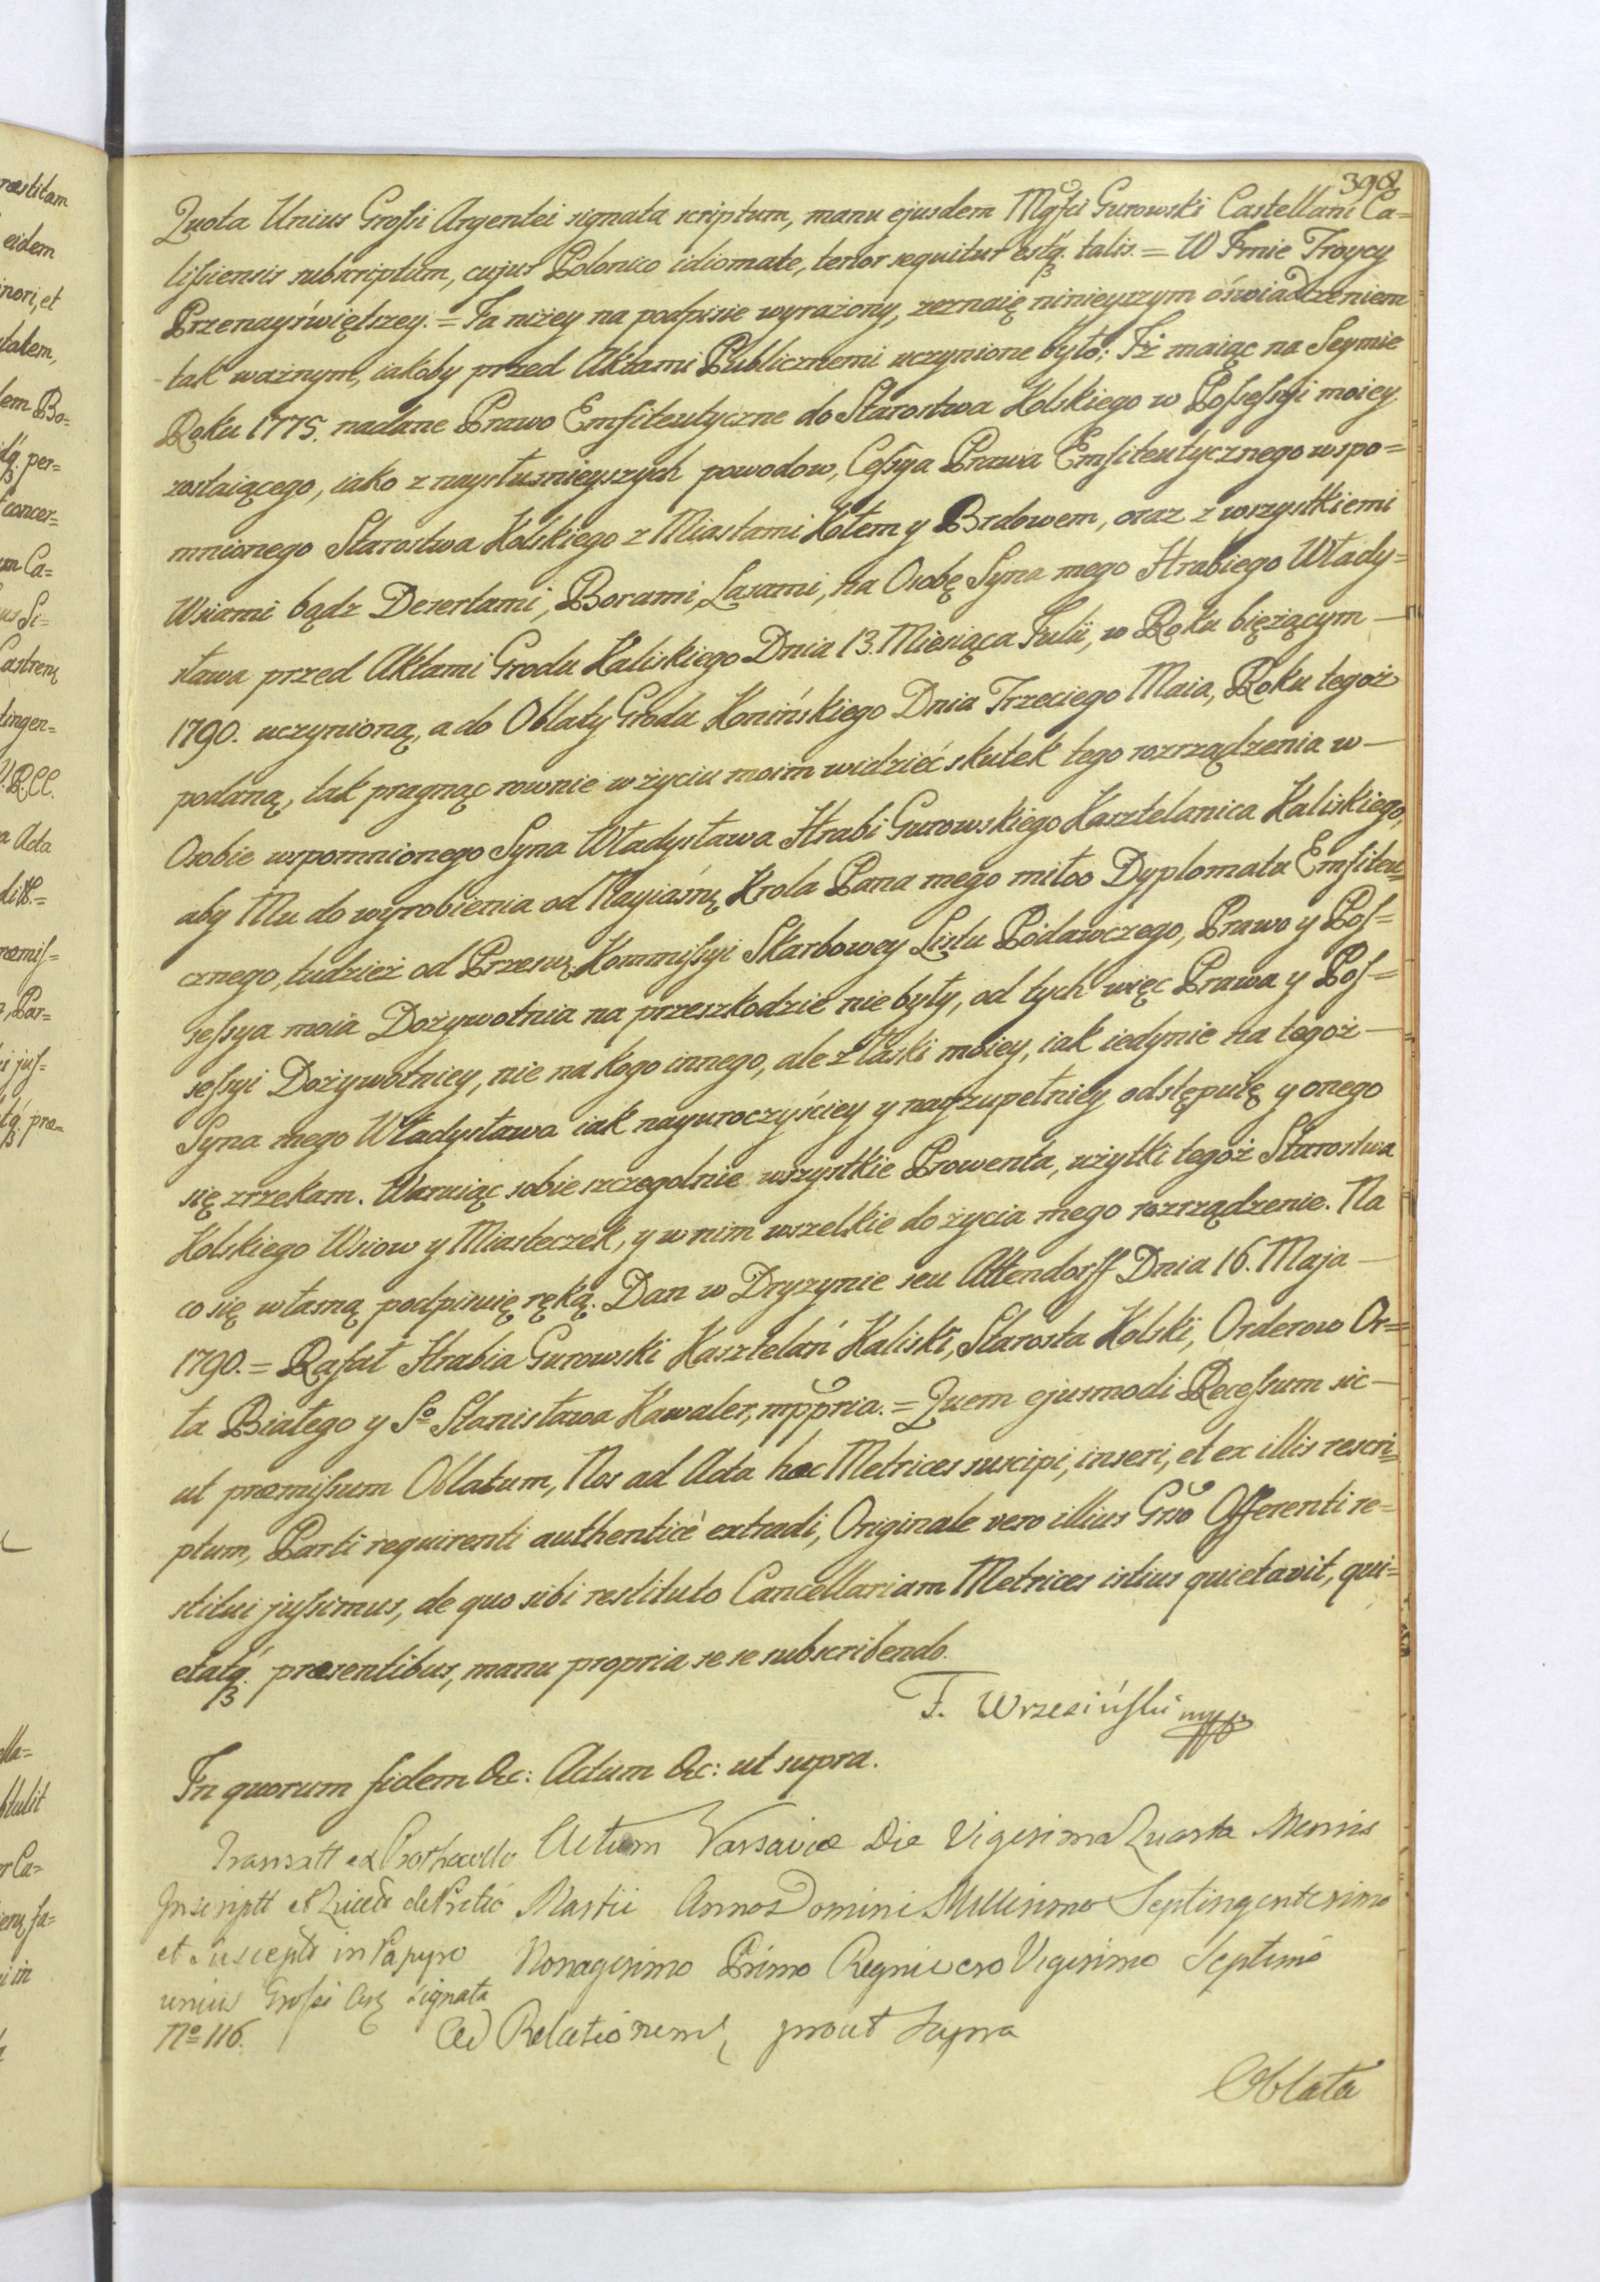 398
Quota Unius Grossi Argentei signata scriptum, manu ejusdem Mgfci Gurowski Castellani Ca=
lissiensis subscriptum, cujus Polonico idiomate, tenor sequitur estq. talis. = W Imie Troycy
Przenayświętszey. = Ja niżey na podpisie wyrażony, zeznaię ninieyszym óświadczeniem
tak ważnym, iakoby przed Aktami Publicznemi uczynione było: Iż maiąc na Seymie
Roku 1775. nadane Prawo Emfiteutyczne do Starostwa Kolskiego w Possessyi moiey
zostaiącego, iako z naysłusznieyszych powodow, Cessya Prawa Emfiteutycznego wspo=
mnionego Starostwa Kolskiego z Miastami Kołem y Brdowem, oraz z wszystkiemi
Wsiami bądz Dezertami, Borami, Lasami, na Osobę Syna mego Hrabiego Włady=
sława przed Aktami Grodu Kaliskiego Dnia 13. Miesiąca Julii, w Roku bieżącym —
1790. uczynioną, a do Oblaty Grodu Konińskiego Dnia Trzeciego Maia, Roku tegoż
podaną, tak pragnąc rownie w życiu moim widzieć skutek tego rozrządzenia w —
Osobie wspomnionego Syna Władysława Hrabi Gurowskiego Kasztelanica Kaliskiego,
aby Mu do wyrobienia od Nayiaśnę Krola Pana mego miłoo Dyplomatu Emfiteu=
cznego, tudzież od Przeswę Kommissyi Skarbowey Listu Podawczego, Prawo y Pos=
sessya moia Dożywotnia na przeszkodzie nie były, od tych więc Prawa y Pos=
sessyi Dożywotniey, nie na kogo innego, ale z łaski moiey, iak iedynie na tegoż —
Syna mego Władysława iak nayuroczyściey y nayzupełniey odstępuię y onego
się zrzekam. Waruiąc sobie szczegolnie wszystkie Prowenta, użytki tegoż Starostwa
Kolskiego Wsiow y Miasteczek, y w nim wszelkie do życia mego rozrządzenie. Na
co się własną podpisuię ręką. Dan w Dryzynie seu Altendorff Dnia 16. Maja —
1790. = Rafał Hrabia Gurowski Kasztelan Kaliski, Starosta Kolski, Orderow Or=
ła Białego y So Stanisława Kawaler, mppria. = Quem ejusmodi Recessum sic —
ut præmissum Oblatum, Nos ad Acta hæc Metrices suscipi, inseri, et ex illis rescri=
ptum, Parti requirenti authenticè extradi, Originale vero illius Grso Offerenti re=
stitui jussimus, de quo sibi restituto Cancellariam Metrices istius quietavit, qui=
etatq. præsentibus, manu propria se se subscribendo.
F. Wrzesiński mpp
In quorum fidem &c: Actum &c: ut supra.
Actum Varsaviæ Die Vigesima Quarta Mensis
Martii Anno Domini Millesimo Septingentesimo
Nonagesimo Primo Regni vero Vigesimo Septimo
Ad Relationem, prout Supra
Transatt ex Prothocollo
Inscriptt
et Suscepto in Papyro
unius Grossi Arg Signata
No 116.
Oblata